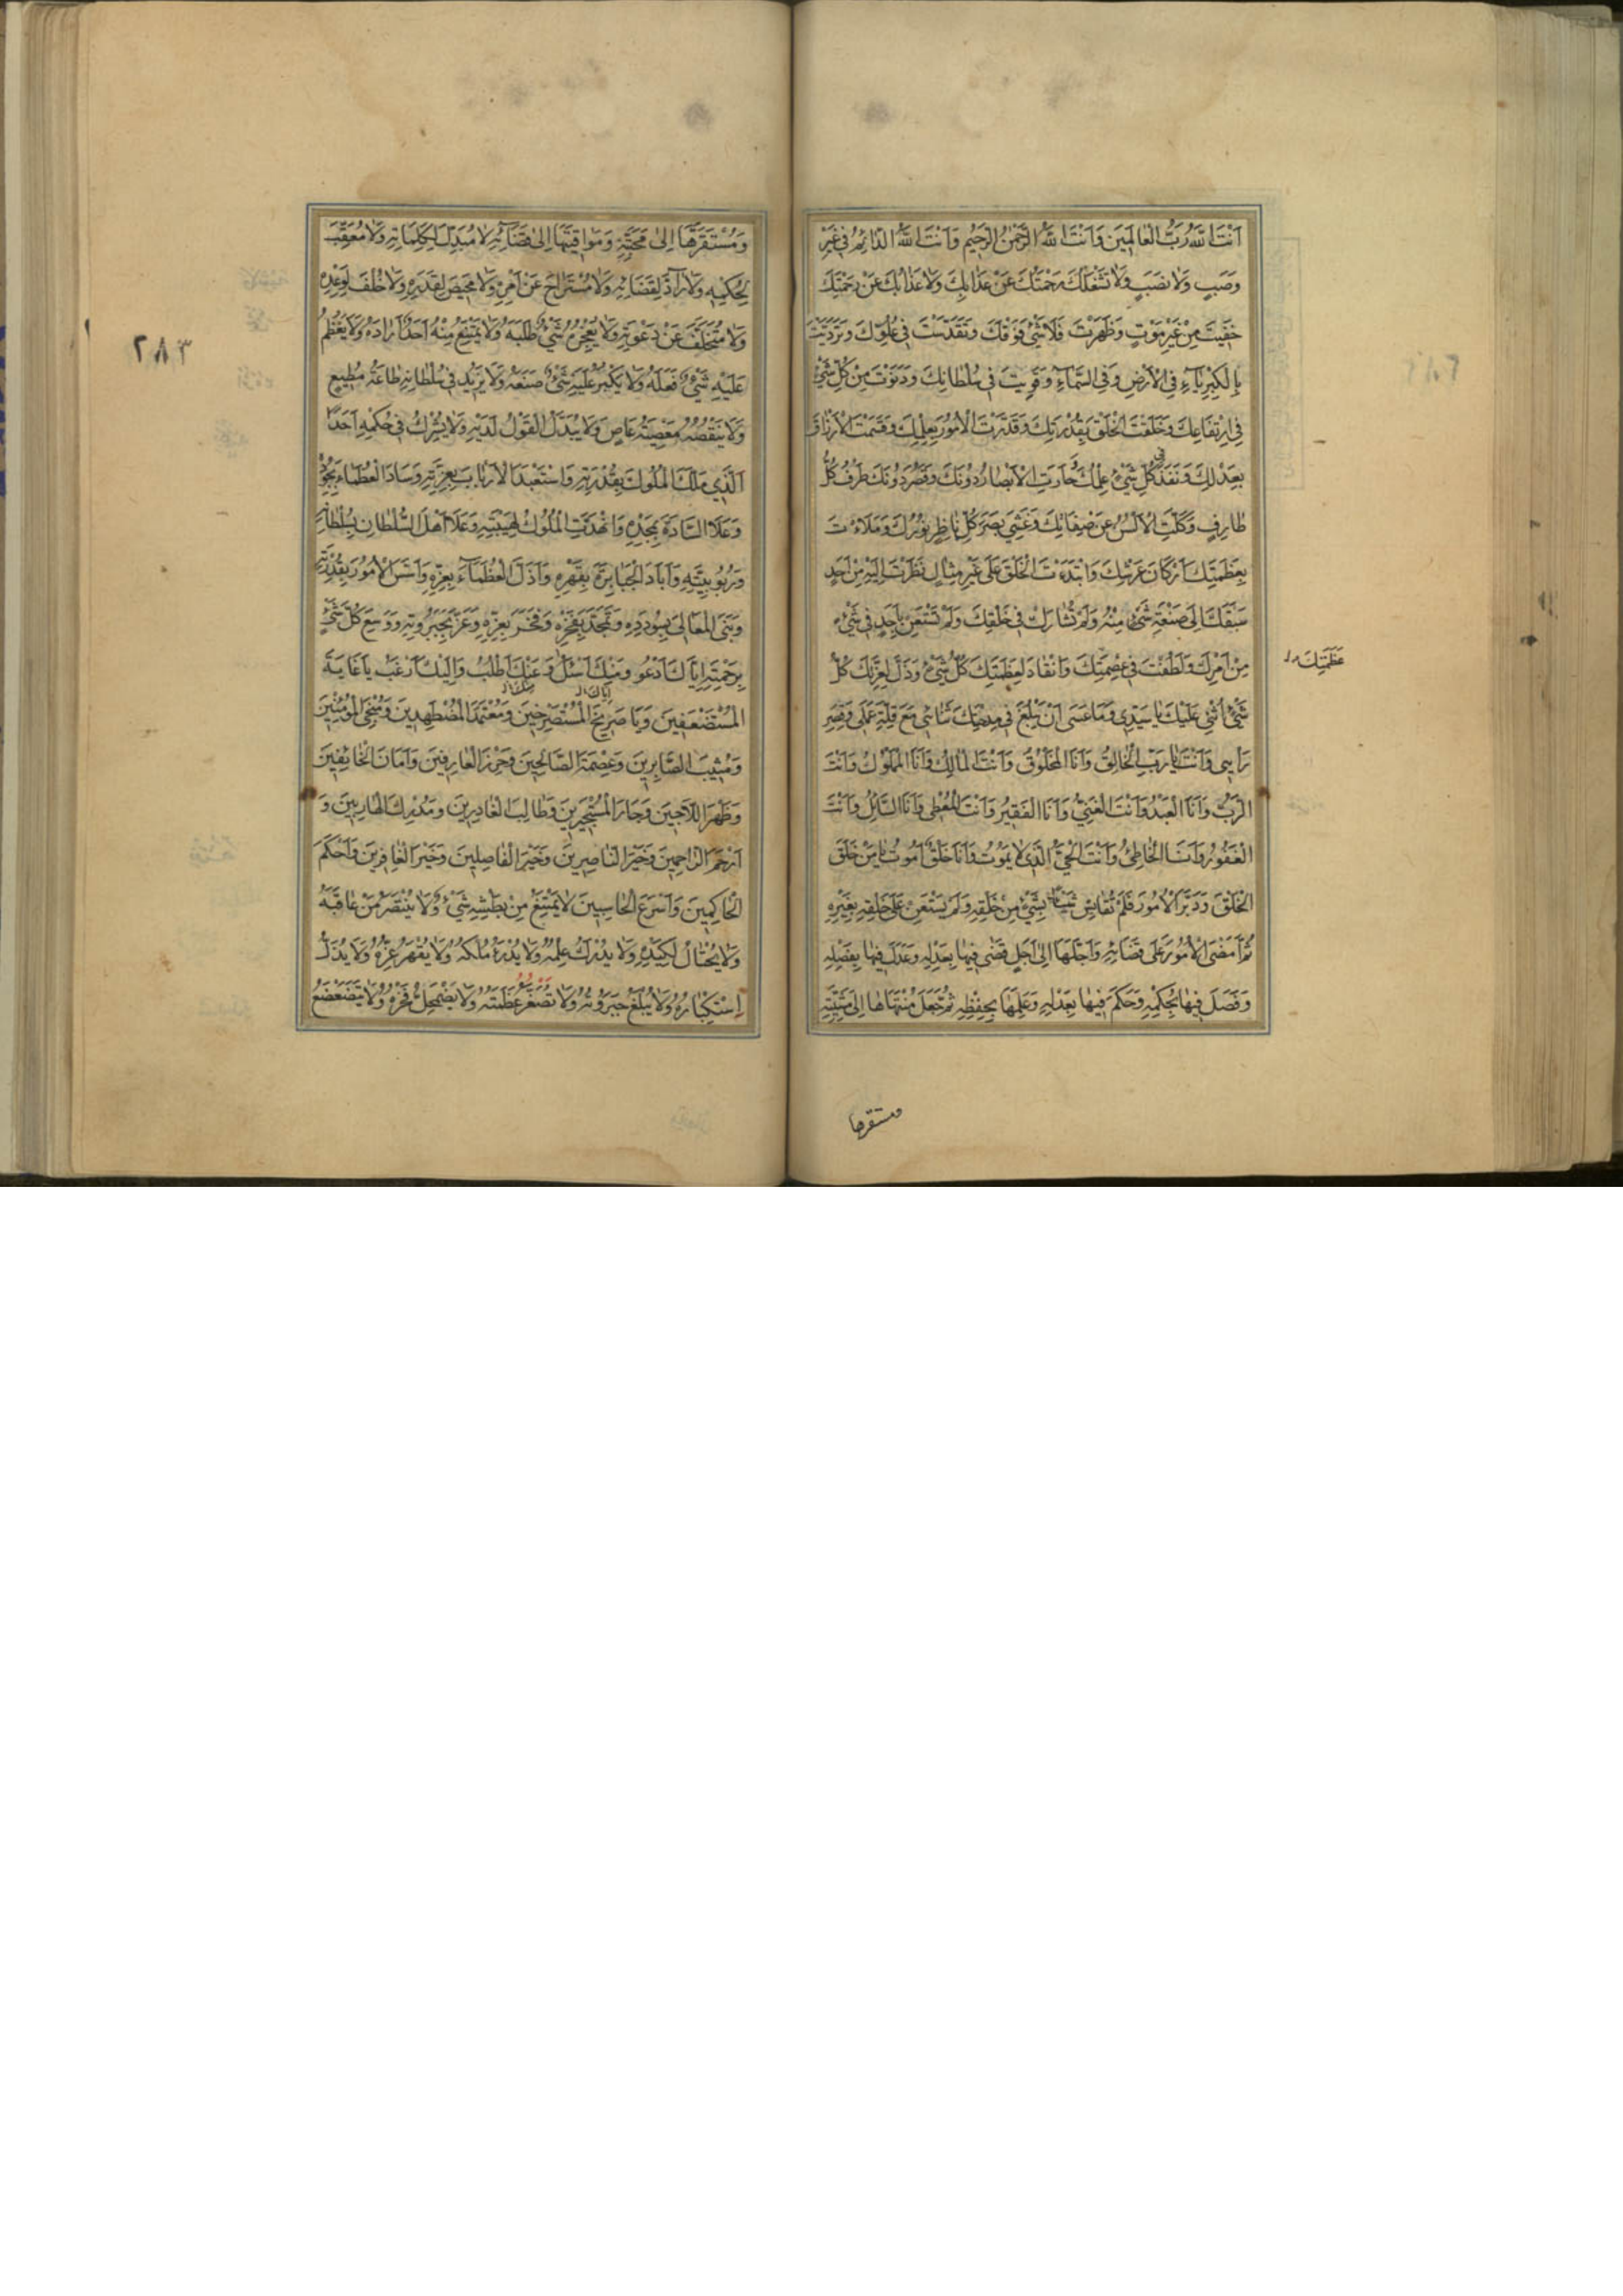 اَنْتَ اللّٰهُ رَبُّ الْعَالَمِينَ وَاَنْتَ اللّٰهُ الرَّحْمٰنُ الرَّحِيمُ وَاَنْتَ اللّٰهُ الدَّائِمُ فِي غَيْرِ
وَصَبٍ وَلَا نَصَبٍ وَلَا تَشْغَلُكَ رَحْمَتُكَ عَنْ عَذَابِكَ وَلَا عَذَابُكَ عَنْ رَحْمَتِكَ
خَفِيتَ مِنْ غَيْرِ مَوْتٍ وَظَهَرْتَ فَلَا شَيْءَ فَوْقَكَ وَتَقَدَّسْتَ فِي عُلُوِّكَ وَتَرَدَّيْتَ
بِالْكِبْرِيَآءِ فِي الْاَرْضِ وَفِي السَّمَآءِ وَقَوِيتَ فِي سُلْطَانِكَ وَدَنَوْتَ مِنْ كُلِّ شَيْءٍ
فِي ارْتِفَاعِكَ وَخَلَقْتَ الْخَلْقَ بِقُدْرَتِكَ وَقَدَّرْتَ الْاُمُورَ بِعِلْمِكَ وَقَسَمْتَ الْاَرْزَاقَ
بِعَدْلِكَ وَنَفَذَ فِي كُلِّ شَيْءٍ عِلْمُكَ وَحَارَتِ الْاَبْصَارُ دُونَكَ وَقَصُرَ دُونَكَ طَرْفُ كُلِّ
طَارِفٍ وَكَلَّتِ الْاَلْسُنُ عَنْ صِفَاتِكَ وَغَشِيَ بَصَرَ كُلِّ نَاظِرٍ نُورُكَ وَمَلَاْتَ
بِعَظَمَتِكَ اَرْكَانَ عَرْشِكَ وَابْتَدَءْتَ الْخَلْقَ عَلَى غَيْرِ مِثَالٍ نَظَرْتَ اِلَيْهِ مِنْ اَحَدٍ
سَبَقَكَ اِلَى صَنْعَةِ شَيْءٍ مِنْهُ وَلَمْ تُشَارَكْ فِي خَلْقِكَ وَلَمْ تَسْتَعِنْ بِاَحَدٍ فِي شَيْءٍ
مِنْ اَمْرِكَ وَلَطُفْتَ فِي عِصْمَتِكَ وَانْقَادَ لِعَظَمَتِكَ كُلُّ شَيْءٍ وَذَلَّ لِعِزَّتِكَ كُلُّ
عَظَمَتِكَ
شَيْءٍ اُثْنِي عَلَيْكَ يَا سَيِّدِي وَمَا عَسَى اَنْ يَبْلُغَ فِي مِدْحَتِكَ ثَنَائِي مَعَ قِلَّةِ عَمَلِي وَقِصَرِ
رَأْيِي وَاَنْتَ يَا رَبِّ الْخَالِقُ وَاَنَا الْمَخْلُوقُ وَاَنْتَ الْمَالِكُ وَاَنَا الْمَمْلُوكُ وَاَنْتَ
الرَّبُّ وَاَنَا الْعَبْدُ وَاَنْتَ الْغَنِيُّ وَاَنَا الْفَقِيرُ وَاَنْتَ الْمُعْطِي وَاَنَا السَّائِلُ وَاَنْتَ
الْغَفُورُ وَاَنَا الْخَاطِئُ وَاَنْتَ الْحَيُّ الَّذِي لَا يَمُوتُ وَاَنَا خَلْقٌ اَمُوتُ يَا مَنْ خَلَقَ
الْخَلْقَ وَدَبَّرَ الْاُمُورَ فَلَمْ يُقَايِسْ شَيْئًا بِشَيْءٍ مِنْ خَلْقِهِ وَلَمْ يَسْتَعِنْ عَلَى خَلْقِهِ بِغَيْرِهِ
ثُمَّ اَمْضَى الْاُمُورَ عَلَى قَضَائِهِ وَاَجَّلَهَا اِلَى اَجَلٍ قَضَى فِيهَا بِعَدْلِهِ وَعَدَلَ فِيهَا بِفَصْلِهِ
وَفَصَلَ فِيهَا بِحُكْمِهِ وَحَكَمَ فِيهَا بِعَدْلِهِ وَعَلِمَهَا بِحِفْظِهِ ثُمَّ جَعَلَ مُنْتَهَاهَا اِلَى مَشِيَّتِهِ
ومستقرها
وَمُسْتَقَرَّهَا اِلَى مَحَبَّتِهِ وَمَوَاقِيتَهَا اِلَى قَضَآئِهِ لَا مُبَدِّلَ لِكَلِمَاتِهِ وَلَا مُعَقِّبَ
لِحُكْمِهِ وَلَا رَآدَّ لِقَضَائِهِ وَلَا مُسْتَرَاحَ عَنْ اَمْرِهِ وَلَا مَحِيصَ لِقَدَرِهِ وَلَا خُلْفَ لِوَعْدِهِ
وَلَا مُتَخَلِّفَ عَنْ دَعْوَتِهِ وَلَا يُعْجِزُهُ شَيْءٌ طَلَبَهُ وَلَا يَمْتَنِعُ مِنْهُ اَحَدٌ اَرَادَهُ وَلَا يَعْظُمُ
عَلَيْهِ شَيْءٌ فَعَلَهُ وَلَا يَكْبُرُ عَلَيْهِ شَيْءٌ صَنَعَهُ وَلَا يَزِيدُ فِي سُلْطَانِهِ طَاعَةُ مُطِيعٍ
وَلَا يَنْقُصُهُ مَعْصِيَةُ عَاصٍ وَلَا يُبَدَّلُ الْقَوْلُ لَدَيْهِ وَلَا يُشْرِكُ فِي حُكْمِهِ اَحَدًا
اَلَّذِي مَلَكَ الْمُلُوكَ بِقُدْرَتِهِ وَاسْتَعْبَدَ الْاَرْبَابَ بِعِزَّتِهِ وَسَادَ الْعُظَمَاءَ بِجُودِهِ
وَعَلَا السَّادَةَ بِمَجْدِهِ وَانْهَدَّتِ الْمُلُوكُ لِهَيْبَتِهِ وَعَلَا اَهْلَ السُّلْطَانِ بِسُلْطَانِهِ
وَرُبُوبِيَّتِهِ وَاَبَادَ الْجَبَابِرَةَ بِقَهْرِهِ وَاَذَلَّ الْعُظَمَآءَ بِعِزِّهِ وَاَسَّسَ الْاُمُورَ بِقُدْرَتِهِ
وَبَنَى الْمَعَالِيَ بِسُودَدِهِ وَتَمَجَّدَ بِفَخْرِهِ وَفَخَرَ بِعِزِّهِ وَعَزَّ بِجَبَرُوتِهِ وَوَسِعَ كُلَّ شَيْءٍ
بِرَحْمَتِهِ اِيَّاكَ اَدْعُو وَمِنْكَ اَسْئَلُ وَ عَنْكَ اَطْلُبُ وَاِلَيْكَ اَرْغَبُ يَا غَايَةَ
الْمُسْتَضْعَفِينَ وَيَا صَرِيخَ الْمُسْتَصْرِخِينَ وَمُعْتَمَدَ الْمُضْطَهَدِينَ وَمُنْجِيَ الْمُؤْمِنِينَ
وَمُثِيبَ الصَّابِرِينَ وَعِصْمَةَ الصَّالِحِينَ وَحِرْزَ الْعَارِفِينَ وَاَمَانَ الْخَائِفِينَ
وَظَهْرَ اللَّاجِينَ وَجَارَ الْمُسْتَجِيرِينَ وَطَالِبَ الْغَادِرِينَ وَمُدْرِكَ الْهَارِبِينَ وَ
اَرْحَمَ الرَّاحِمِينَ وَخَيْرَ النَّاصِرِينَ وَخَيْرَ الْفَاصِلِينَ وَخَيْرَ الْغَافِرِينَ وَاَحْكَمَ
الْحَاكِمِينَ وَاَسْرَعَ الْحَاسِبِينَ لَا يَمْتَنِعُ مِنْ بَطْشِهِ شَيْءٌ وَلَا يَنْتَصِرُ مَنْ عَاقَبَهُ
وَلَا يُحْتَالُ لِكَيْدِهِ وَلَا يُدْرَكُ عِلْمُهُ وَلَا يُدْرَءُ مُلْكُهُ وَلَا يُقْهَرُ عِزُّهُ وَلَا يُذَلُّ
اِسْتِكْبَارُهُ وَلَا يُبْلَغُ جَبَرُوتُهُ وَلَا تَصْغُرُ عَظَمَتُهُ وَلَا يَضْمَحِلُّ فَخْرُهُ وَلَا يَتَضَعْضَعُ
٢٨٣